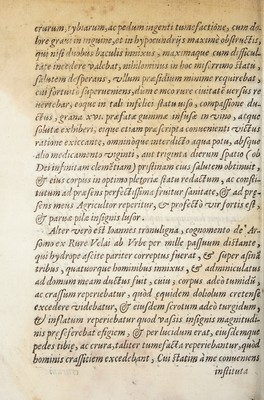 crurum, tybiarum, ac pedum ingenti tumefactione, cum de
bore gravis in inguine, et in hypocundrijs maximè obstructis,
qui nisi duobus baculis innixus, maximaque cum difficul
tate incedere valebat, nihilominus in hoc miserrimo statu,
salutem desperans, vllum præsidium minime requirebat,
cui fortuitò superueniens, dum e meo rure ciuitatē versus re
uertebar, eoque in tali infebci statu viso, compassione du
ctus, grana xvi. præfatæ gummæ infusæ in vino, atque
solutæ exhiberi, eique etiam præscripta conuenienti victus
ratione exiccante, omninoque interdicto aqua potu, absque
alio medicamento viginti, aut triginta dierum spatio (ob
Dei infinitam clementiam) pristinam eius salutem obtinuit,
& eius corpus in optimo pleroque statu redactum, ac consti-
tutum ad præsens perfectissima fruitur sanitate, & ad præ-
sens meus Agricultor reperitur, & profectò vir fortis est,
& paruæ pilæ insignis lusor.
Alter verò est Ioannes tronuligna, cognomento de Ar-
sono ex Rure Velai ab Vrbe per mille passuum distante,
qui hydrope ascite pariter correptus fuerat, & super asina
tribus, quatuorque hominibus innixus, & adminiculatus
ad domum meam ductus fuit, cuiu, corpus adeò tumidū
ac crassum reperiebatur, quòd equidem doliolum cretense
excedere videbatur, & eiusdem scrotum adeò turgidum,
& inflatum reperiebatur quod vasis insignis magnitudi-
nis preseferebat efigiem, & per lucidum erat, eiusdemque
pedes tibiæ, ac crura, taliter tumefacta reperiebantur, quòd
hominis crassitiem excedebant, Cui statim à me conueniens
instituta